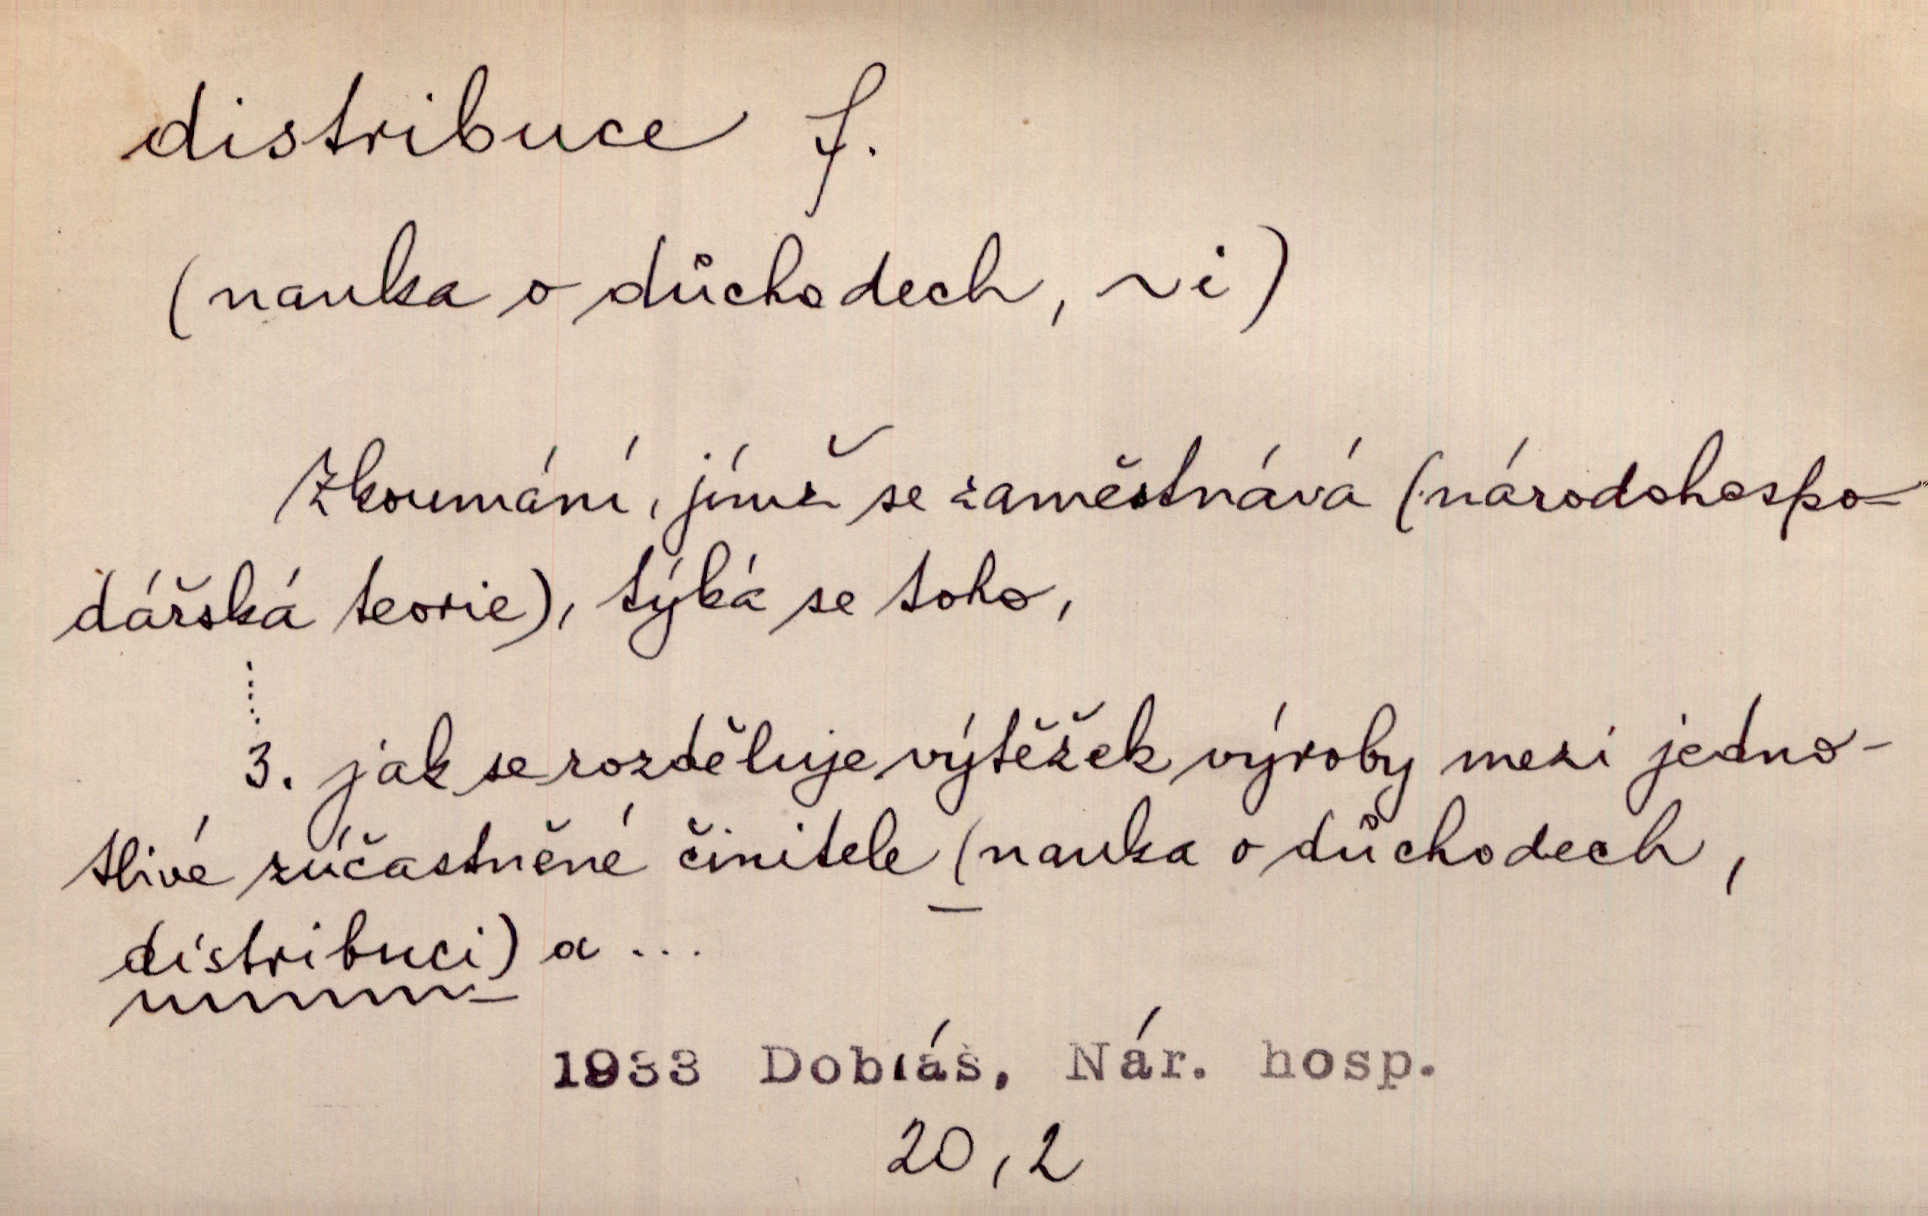 distribuce f.
(nauka o důchodech, ~i)
Zkoumání, jímž se zaměstnává (národohospo-
dářská teorie), týká se toho,
.....
3. jak se rozděluje výtěžek výroby mezi jedno-
tlivé zúčastněné činitele (nauka o důchodech,
distribuci) a ...
1933 Dobiáš, Nár. hosp.
20,2